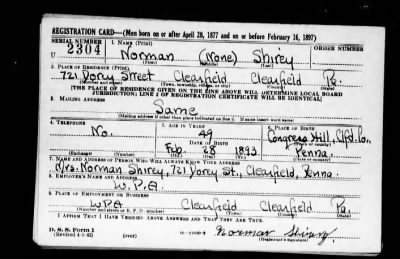 REGISTRATION CARD—(Men born on or after April 28, 1877 and on or before February 16, 1897)
SERIAL NUMBER 1. NAME (Print) ORDER NUMBER
U 2304 Norman (None) Shirey
(First) (Middle) (Last)
2. PLACE OF RESIDENCE (Print)
721 Dorey Street Clearfield Clearfield Pa.
(Number and street) (Town, township, village, or city) (County) (State)
[THE PLACE OF RESIDENCE GIVEN ON THE LINE ABOVE WILL DETERMINE LOCAL BOARD
JURISDICTION; LINE 2 OF REGISTRATION CERTIFICATE WILL BE IDENTICAL]
3. MAILING ADDRESS
Same
[Mailing address if other than place indicated on line 2. If same insert word same]
4. TELEPHONE 5. AGE IN YEARS 6. PLACE OF BIRTH
No. 49 Congress Hill, Clfd. Co.,
DATE OF BIRTH (Town or county)
Feb. 28 1893 Penna.
(Exchange) (Number) (Mo.) (Day) (Yr.) (State or country)
7. NAME AND ADDRESS OF PERSON WHO WILL ALWAYS KNOW YOUR ADDRESS
Mrs. Norman Shirey, 721 Dorey St., Clearfield, Penna.
8. EMPLOYER'S NAME AND ADDRESS
W.P.A.
9. PLACE OF EMPLOYMENT OR BUSINESS
WPA Clearfield Clearfield Pa.
(Number and street or R. F. D. number) (Town) (County) (State)
I AFFIRM THAT I HAVE VERIFIED ABOVE ANSWERS AND THAT THEY ARE TRUE.
D. S. S. Form 1
(Revised 4-1-42) (over) Norman Shirey
(Registrant's signature)